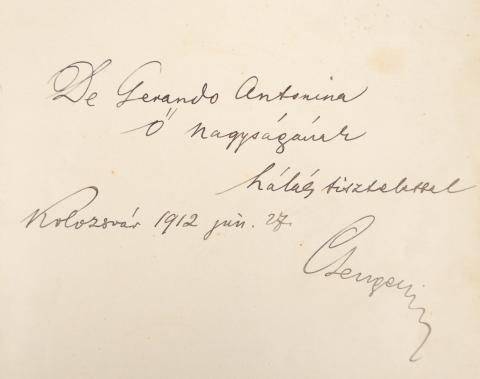 De Gerando Antonina
Ő Nagyságának
hálás tisztelettel
Kolozsvár 1912 jún. 27.
Csengeri